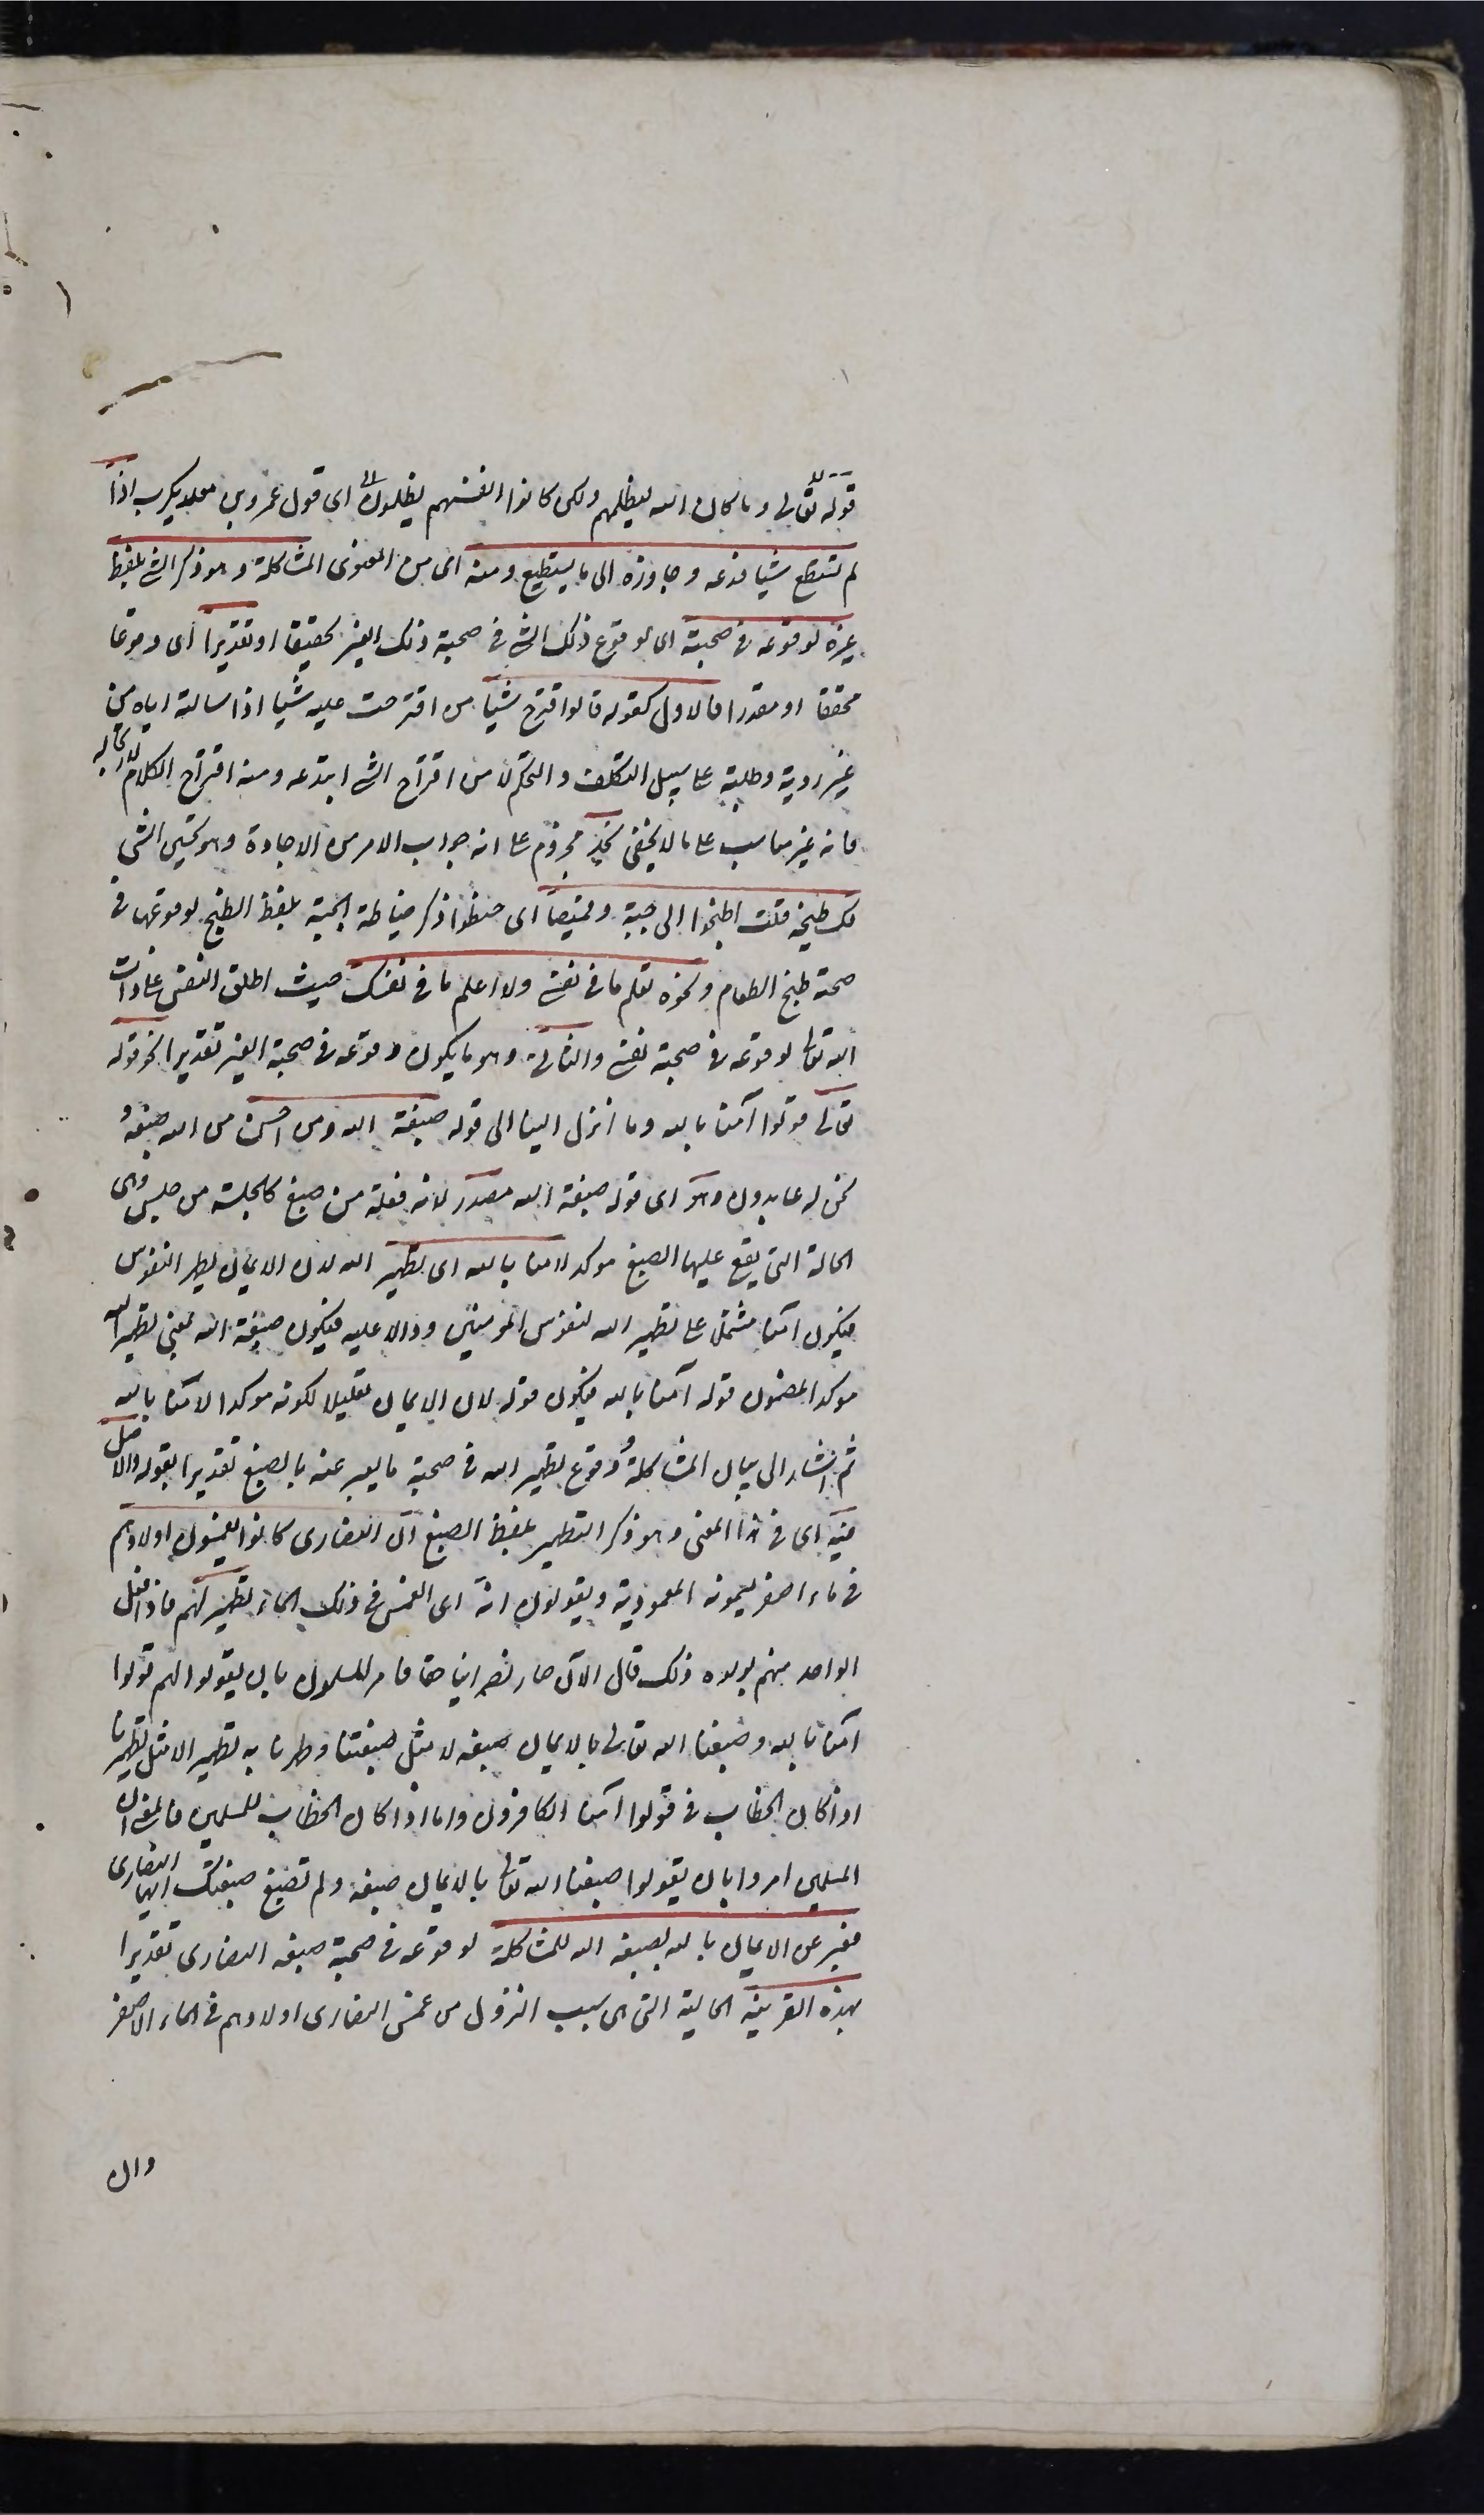 قوله تعالى وما كان الله ليظلمهم ولكن كانوا انفسهم يظلمون اى قول عمرو بن معديكرب اذا
لم تستطع شيا فدعه وجاوزه الى ما يستطيع ومنه اى من المعنوى المشاكلة وهو ذكر الشى بلفظ
غيره لوقوعه فى صحبته اى لوقوع ذلك الشى فى صحبة ذلك الغير تحقيقا او تقديرا اى وقوعا
محققا او مقدرا فالاول كقوله قالوا اقترح شيا من اقترحت عليه شيا اذا سالته اياه من
غير روية وطلبته على سبيل التكلف والتحكم لا من اقترح الشى ابتدعه ومنه اقتراح الكلام لارتجاله
فانه غير مناسب على ما لا يخفى نجد مجزوم على انه جواب الامر من الاجادة وهو تحسين الشى
لك طبخه قلت اطبخوا لى جبة وقميصا اى خيطوا ذكر خياطة الجبة بلفظ الطبخ لوقوعها فى
صحبة طبخ الطعام ونحوه تعلم ما فى نفسى ولا اعلم ما فى نفسك حيث اطلق النفس على ذات
الله تعالى لوقوعه فى صحبة نفسى والثانى وهو ما يكون وقوعه فى صحبة الغير تقديرا نحو قوله
تعالى قولوا آمنا بالله وما انزل الينا الى قوله صبغة الله ومن احسن من الله صبغة و
نحن له عابدون وهو اى قوله صبغة الله مصدر لانه فعلة من صبغ كالجلسة من جلس وهى
الحالة التى يقع عليها الصبغ موكد لامنا بالله اى تطهير الله لان الايمان يطهر النفوس
فيكون آمنا مشتملا على تطهير الله لنفوس المومنين ودالا عليه فيكون صبغة الله بمعنى تطهير الله
موكدا لمضمون قوله آمنا بالله فيكون قوله لان الايمان تعليلا لكونه موكدا لآمنا بالله
ثم اشار الى بيان المشاكلة ووقوع تطهير الله فى صحبة ما يعبر عنه بالصبغ تقديرا بقوله والاصل
فيه اى فى هذا المعنى وهو ذكر التطهير بلفظ الصبغ ان النصارى كانوا يغمسون اولادهم
فى ماء اصفر يسمونه المعمودية ويقولون انه اى الغمس فى ذلك الماء تطهير لهم فاذا فعل
الواحد منهم بولده ذلك قال الآن صار نصرانيا حقا فامر المسلمون بان يقولوا لهم قولوا
آمنا بالله وصبغنا الله تعالى بالايمان صبغة لا مثل صبغتنا وطهرنا به تطهيرا لا مثل تطهيرنا
اذا كان الخطاب فى قولوا آمنا للكافرين واما اذا كان الخطاب للمسلمين فالمعنى ان
المسلمين امروا بان يقولوا صبغنا الله تعالى بالايمان صبغة ولم تصبغ صبغتك ايها النصارى
فعبر عن الايمان بالله بصبغة الله للمشاكلة لوقوعه فى صحبة صبغة النصارى تقديرا
بهذه القرينة الحالية التى هى سبب النزول من غمس النصارى اولادهم فى الماء الاصفر
وان